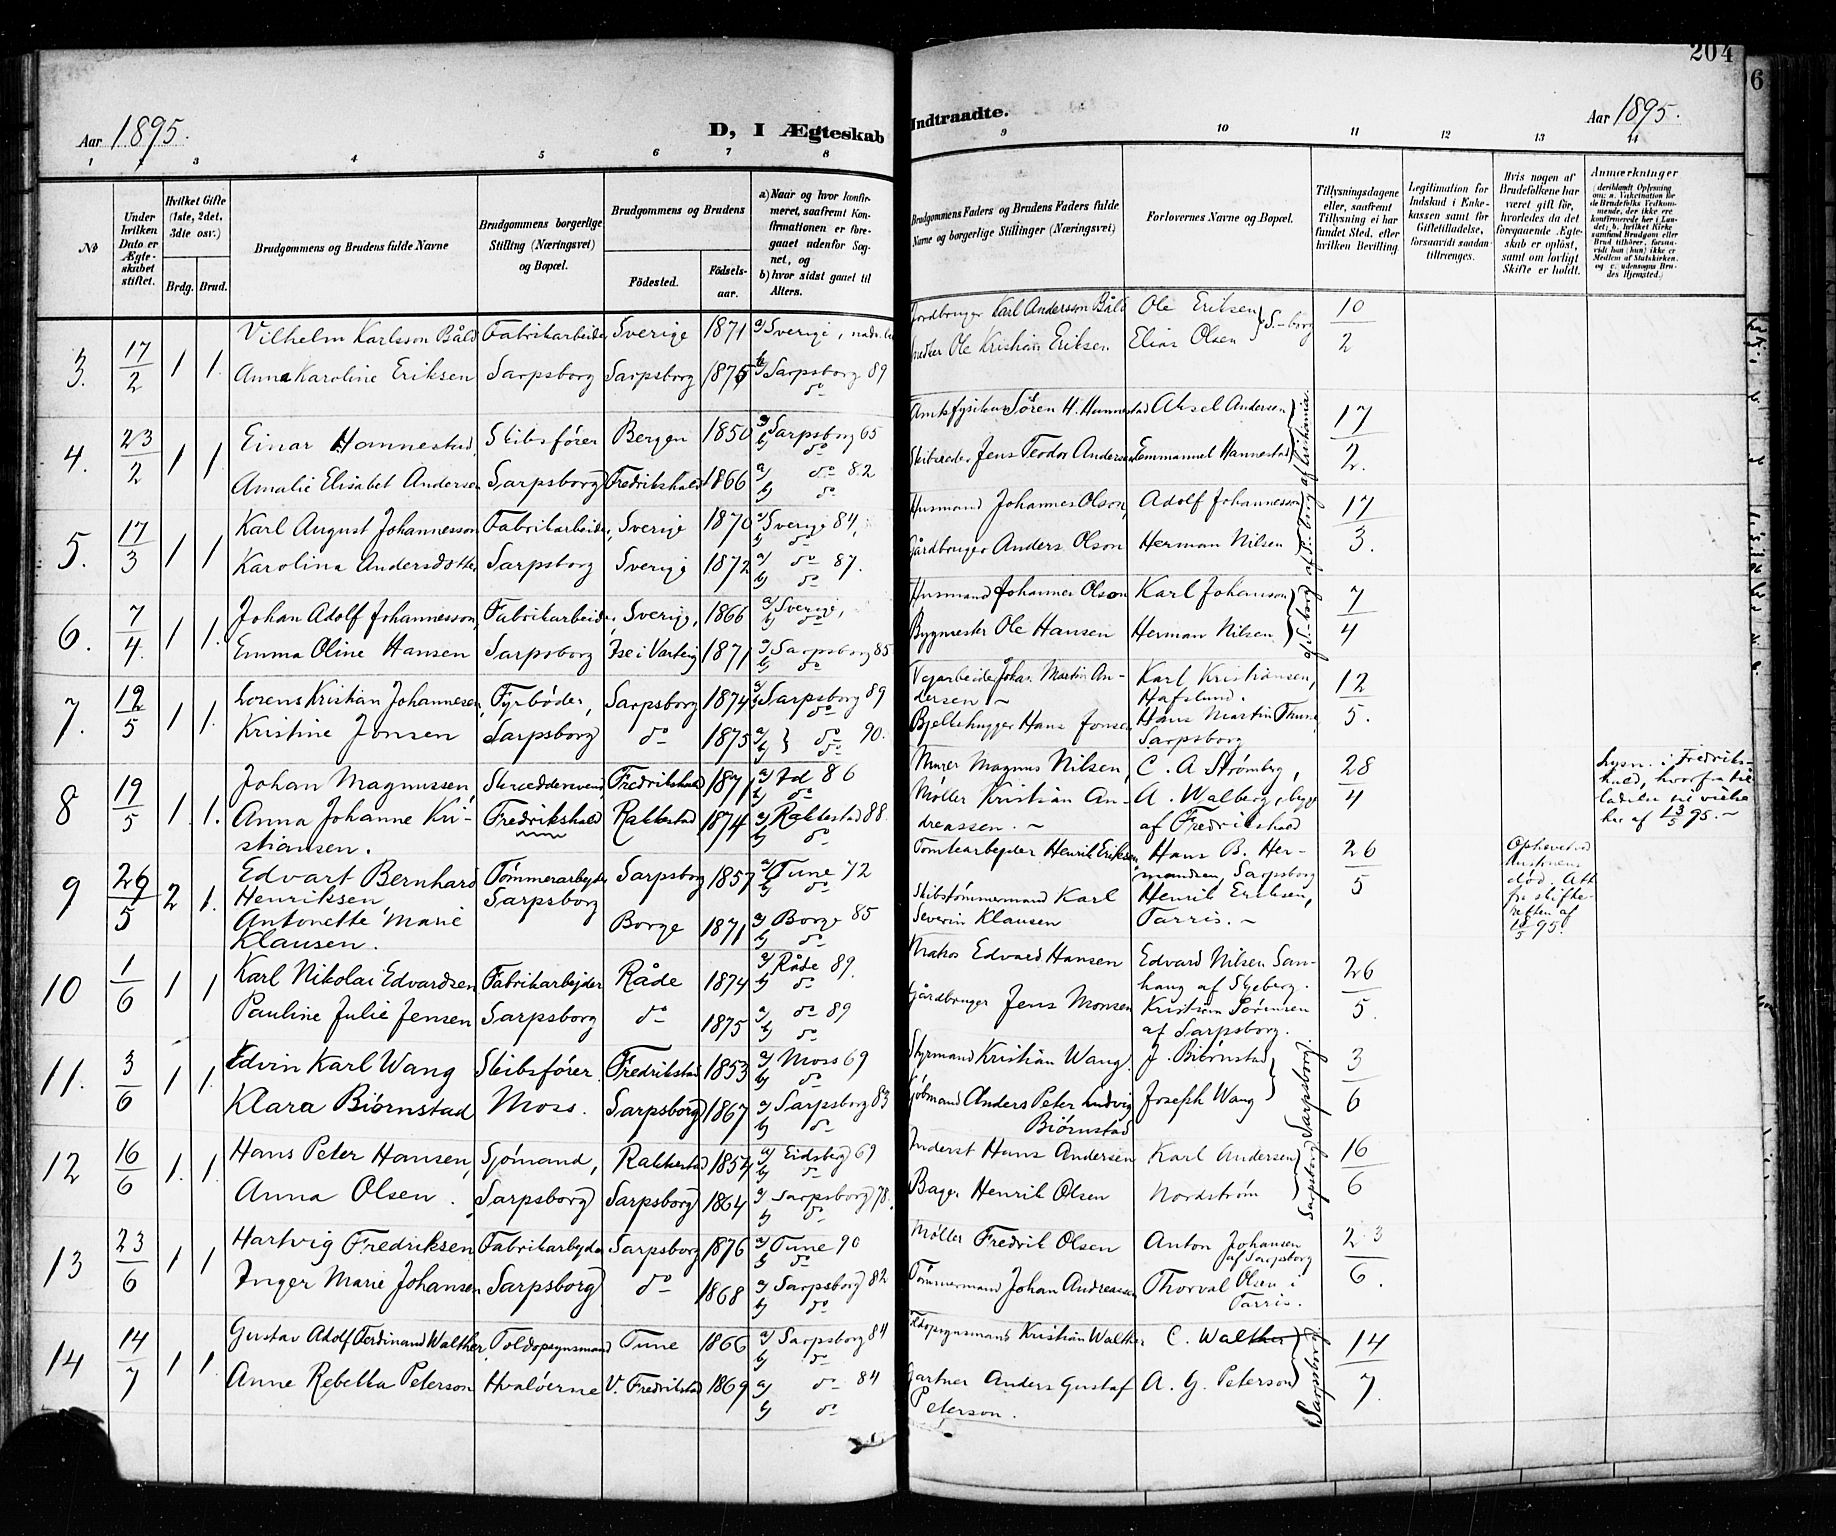 204
6
Aar 1895.
D, I Ægteskab
Indtraadte.
Aar 1895.
1 2 3 4 5 6 7 8 9 10 11 12 13 14
№
Under hvilken Dato er Ægteskabet stiftet.
Hvilket Gifte (1ste, 2det. 3dte osv.)
Brdg. Brud.
Brudgommens og Brudens fulde Navne
Brudgommens borgerlige Stilling (Næringsvei) og Bopæl.
Brudgommens og Brudens
Födested. Födsels-aar.
a) Naar og hvor konfirmeret, saafremt Konfirmationen er foregaaet udenfor Sognet, og
b) hvor sidst gaaet til Alters.
Brudgommens Faders og Brudens Faders fulde Navne og borgerlige Stillinger (Næringsvei)
Forlovernes Navne og Bopæl.
Tillysningsdagene eller, saafremt Tillysning ei har fundet Sted, efter hvilken Bevilling
Legitimation for Indskud i Enkekassen samt for Giftetilladelse, forsaavidt saadan tiltrænges.
Hvis nogen af Brudefolkene har været gift för, hvorledes da det foregaaende Ægteskab er oplöst, samt om lovligt Skifte er holdt.
Anmærkninger
3. 17/2 1 1. Vilhelm Karlsson Båld Fabrikarbeider Sverige 1871 a/ Sverige, Jordbruger Karl Andersson Båld Ole Eriksen S-borg 10/2
Anna Karoline Eriksen Sarpsborg Sarpsborg 1875 Sarpsborg 89 do Ole Kristian Eriksen Elias Olsen
4. 23/2 1 1 Einar Hannestad Skibsfører Bergen 1850 a/ b/ Sarpsborg 65 do Amtsfysikus Sören H. Hannestad Aksel Andersen 17/2.
Amalie Elisabet Andersen Sarpsborg Fredrikshald 1866 a/ do 82 b/ do Skibsreder Jens Teodor Andersen Emmanuel Hannestad
5. 17/3 1 1 Karl August Johannesson Fabrikarbeider, Sverige 1870 a/ Sverige 84, b/ do Husmand Johannes Olson, Adolf Johannesson 17/3.
Karolina Andersdotter Sarpsborg Sverige 1872 a/ do 87. b/ do Gårdbruger Anders Olson Herman Nilsen
6. 7/4. 1 1. Johan Adolf Johannesson, Fabrikarbeider, Sverige, 1866 a/ Sverige, b/ do Husmand Johannes Olson Karl Johanson 7/4
Emma Oline Hansen Sarpsborg Ise i Varteig 1871 a/ Sarpsborg 85 b/ do Bygmester Ole Hansen Herman Nilsen
7. 12/5 1 1. Lorens Kristian Johannesen, Fyrbøder, Sarpsborg 1874 a/ Sarpsborg 89 b/ do Vejarbeider Johan Martin Andersen Karl Kristiansen, Hafslund. 12/5.
Kristine Jonsen Sarpsborg do 1875 a/ b/ } do 90. do Hans Jonsen Hans Martin Thune Sarpsborg
8 19/5 1. 1. Johan Magnussen Skreddersvend, Fredrikshald 1871 a/ Id 86 b/ do Murer Magnus Nilsen, C. A Strømberg, 28/4
Anna Johanne Kristiansen. Fredrikshald Rakkestad 1874 a/ Rakkestad 88. b/ do Møller Kristian Andreassen. A. Walberg, begge af Fredrikshald
Lysn. i Fredrikshald, hvorfra til
9 26/5 2 1. Edvart Bernhard Henriksen Tømmerarbejder Sarpsborg Sarpsborg 1857 a/ Tune 72 b/ do Tomtearbejder Henrik Eriksen Hans B. Hermandsen, Sarpsborg 26/5
Antonette Marie Klausen. Borge 1871 a/ Borge 85 b/ do Skibstømmermand Karl Severin Klausen Henrik Eriksen, Tarris.
Ophævet ved Hustruens død. Att. fra skifteretten af
10 1/6 1 1 Karl Nikolai Edvardsen Fabrikarbejder Råde 1874 a/ Råde 89. b/ do Edvard Hansen Edvard Nilsen Sanhaug af Skjeberg. 26/5.
Pauline Julie Jensen Sarpsborg do 1875 a/ do 89 b/ do Gårdbruger Jens Monsen Kristian Sørensen af Sarpsborg.
11. 3/6 1 1. Edvin Karl Wang Skibsfører. Fredrikstad 1853 a/ Moss 69 b/ do Styrmand Kristian Wang. J. Biørnstad 3/6
Klara Biørnstad Moss. Sarpsborg 1867 a/ Sarpsborg 83 b/ do Kjøbmand Anders Peter Ludvig Biørnstad Joseph Wang Sarpsborg.
12 16/6 1. 1. Hans Peter Hansen, Sjømand, Rakkestad 1854 a/ Eidsberg 69 b/ do Inderst Hans Andersen Karl Andersen 16/6
Anna Olsen. Sarpsborg Sarpsborg 1864 a/ Sarpsborg 78. b/ do Bager Henrik Olsen Nordstrøm Sarpsborg
13 23/6 1 1. Hartvig Fredriksen Fabrikarbyder Sarpsborg 1876 a/ Tune 90 b/ do Møller Fredrik Olsen Anton Johansen af Sarpsborg 23/6.
Inger Marie Johansen Sarpsborg do 1868 a/ Sarpsborg 82 b/ do Tømmermand Johan Andreassen Thorval Olsen i Tarris.
14 14/7 1 1. Gustav Adolf Ferdinand Walther, Toldopsynsmand Tune 1866 a/ Sarpsborg 84 b/ do Toldopsynsmand Kristian Walther C. Walther 14/7.
Anne Rebekka Peterson Hvaløerne V. Fredrikstad 1869 a/ do 84 b/ do Gartner Anders Gustaf Peterson. A. G. Peterson Sarpsborg.